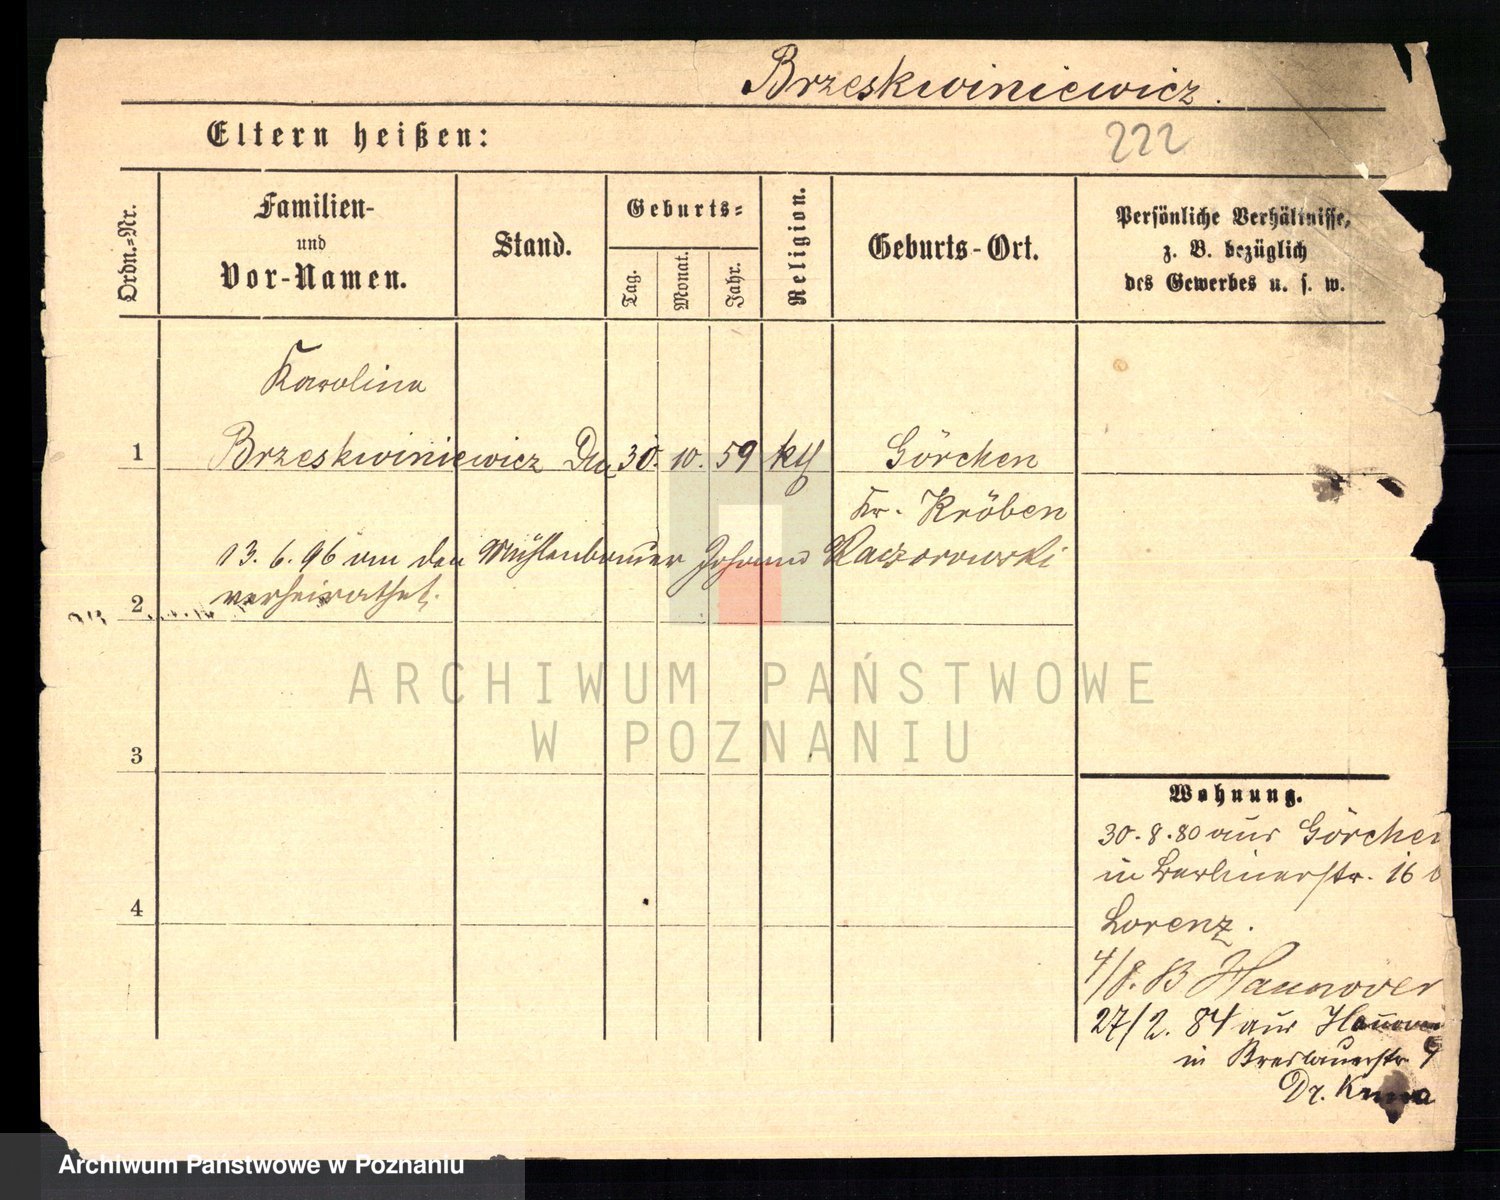 Brzeskwiniewicz.
Eltern heißen:
222
Ordn.-Nr.
Familien-
und
Vor-Namen.
Stand.
Geburts-
Tag.
Monat.
Jahr.
Religion.
Geburts-Ort.
Persönliche Verhältnisse,
z. B. bezüglich
des Gewerbes u. s. w.
Karolina
1 Brzeskwiniewicz 30. 10. 59 kth Görchen
Kr. Kröben
13. 6. 96 an den Mühlenbauer Johann Kaczorowski
2 verheirathet.
3
4
Wohnung.
30. 8. 80 aus Görchen
in Berlinerstr. 16
Lorenz.
4/8. Hannover
27/2. 84 aus Hannover
in Breslauerstr. 9
Dr.
ARCHIWUM PAŃSTWOWE
W POZNANIU
Archiwum Państwowe w Poznaniu